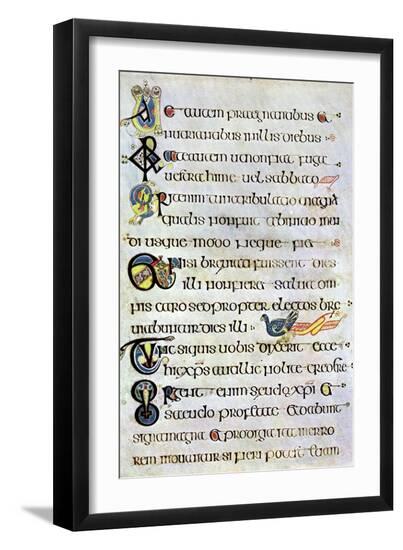 Uae autem praegnantibus et
nutriantibus in illis diebus
Orate autem ut non fiat fuga
uestra hieme uel sabbato
Erit enim tunc tribulatio magna
qualis non fuit ab initio mun
di usque modo neque fiet
Et nisi breuiati fuissent dies
illi non fieret salua om
nis caro sed propter electos bre
uiabuntur dies illi
Tunc si quis uobis dixerit ecce
hic xps aut illic nolite credere
Surgent enim seudo xpi et
seudo profetae et dabunt
signa magna et prodigia ita ut in erro
rem si fieri potest etiam